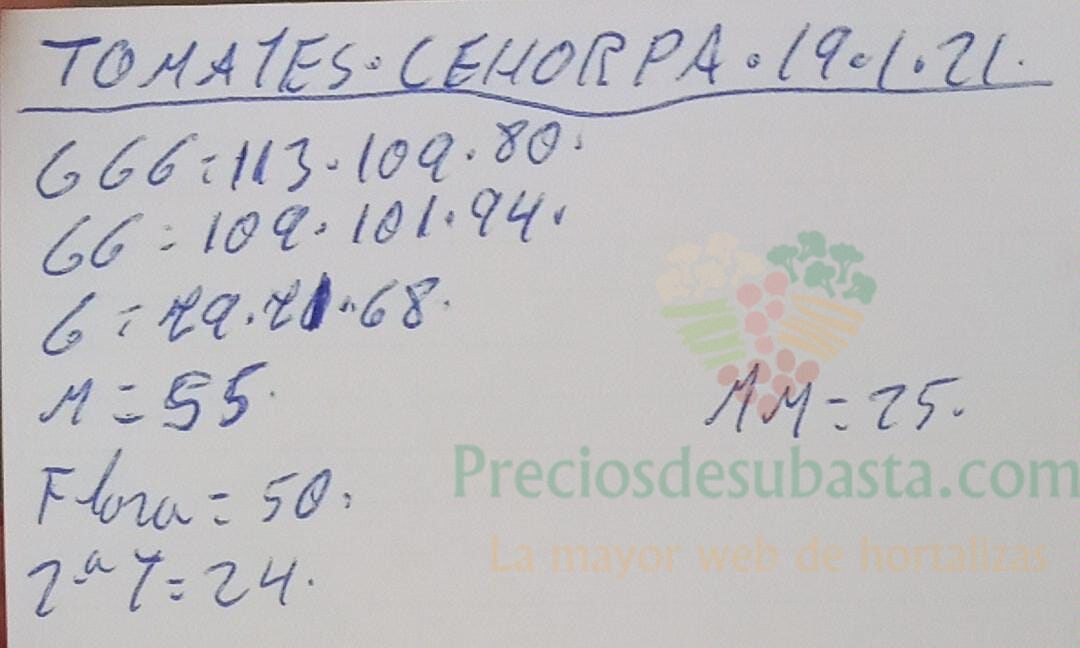 TOMATES. CEHORPA. 19.1.21.
GGG=113.109.80.
GG=109.101.94.
G=79.71.68.
M=55.
MM=25.
Preciosdesubasta.com
Flora=50.
La mayor web de hortalizas
2ªT=24.